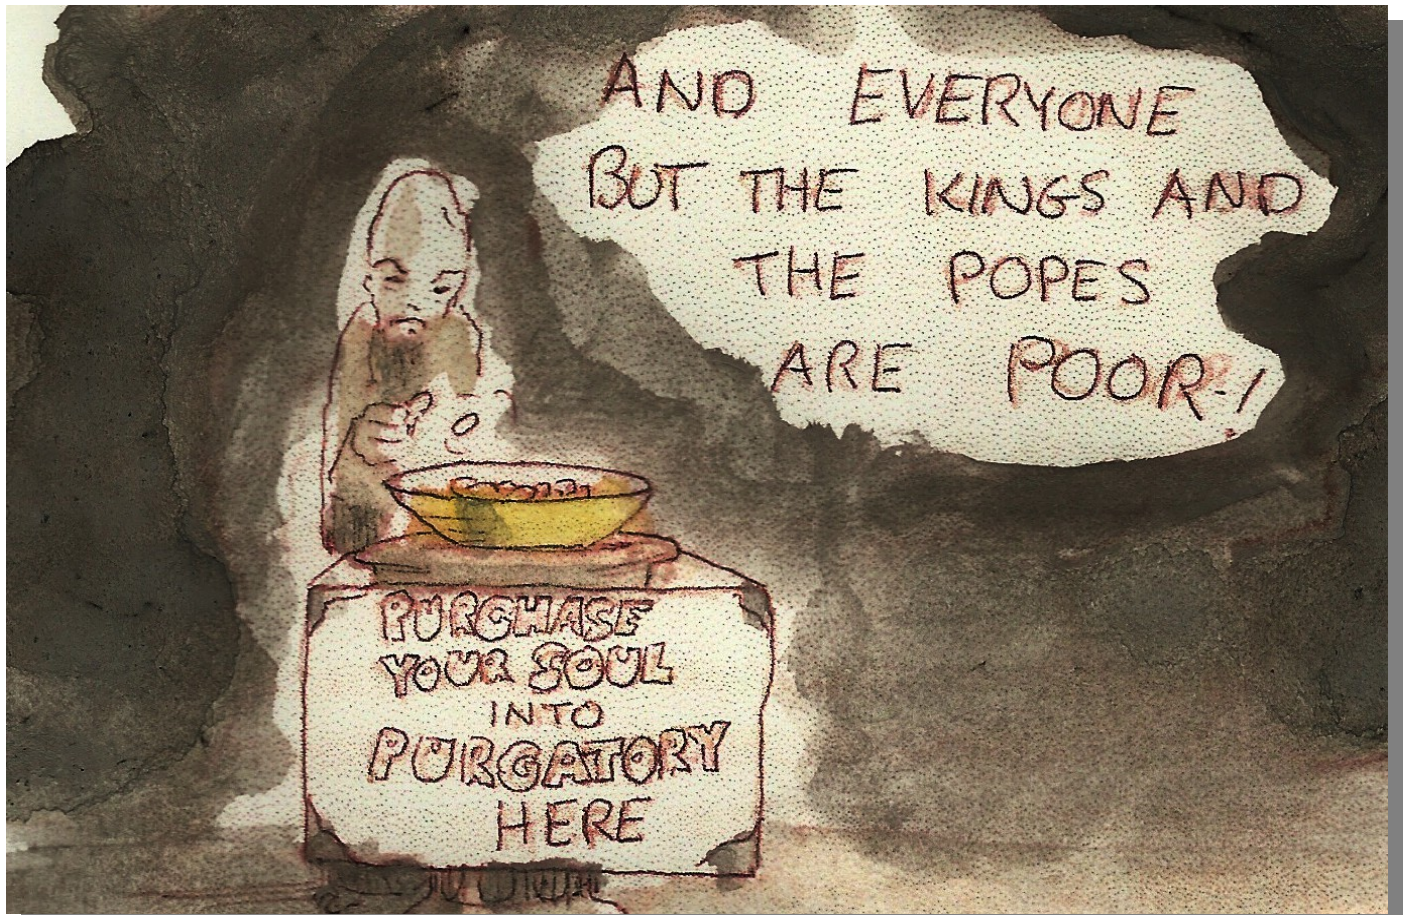 AND EVERYONE
BUT THE KINGS AND
THE POPES
ARE POOR-!
PURCHASE
YOUR SOUL
INTO
PURGATORY
HERE